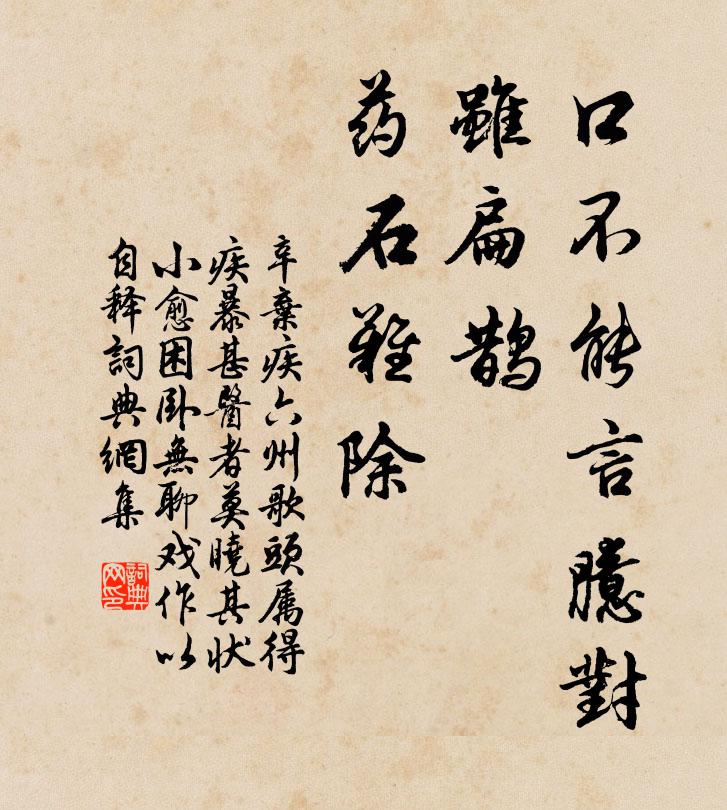 口不能言臆對
雖扁鵲
药石難除
辛棄疾六州歌頭属得
疾暴甚醫者莫曉其状
小愈困卧無聊戏作以
自释詞典網集
詞典网印